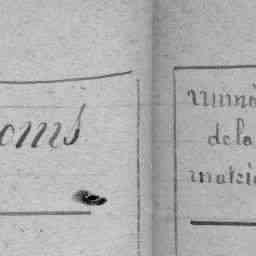 oms
numé
de la
matric